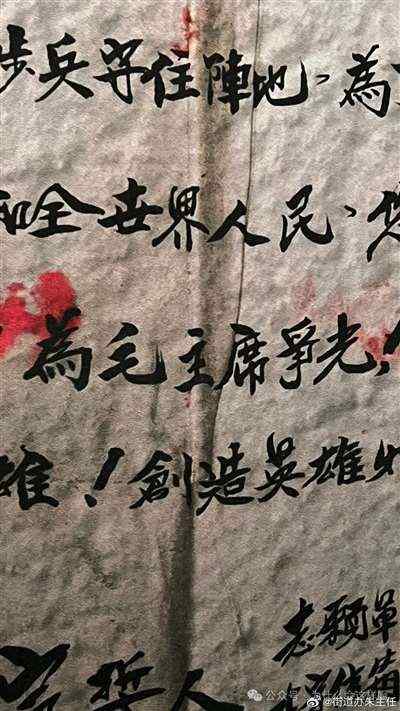 步兵守住陣地、為
和全世界人民、
為毛主席爭光！
雄！創造英雄
誓人
志願軍
公众号
@街道办朱主任